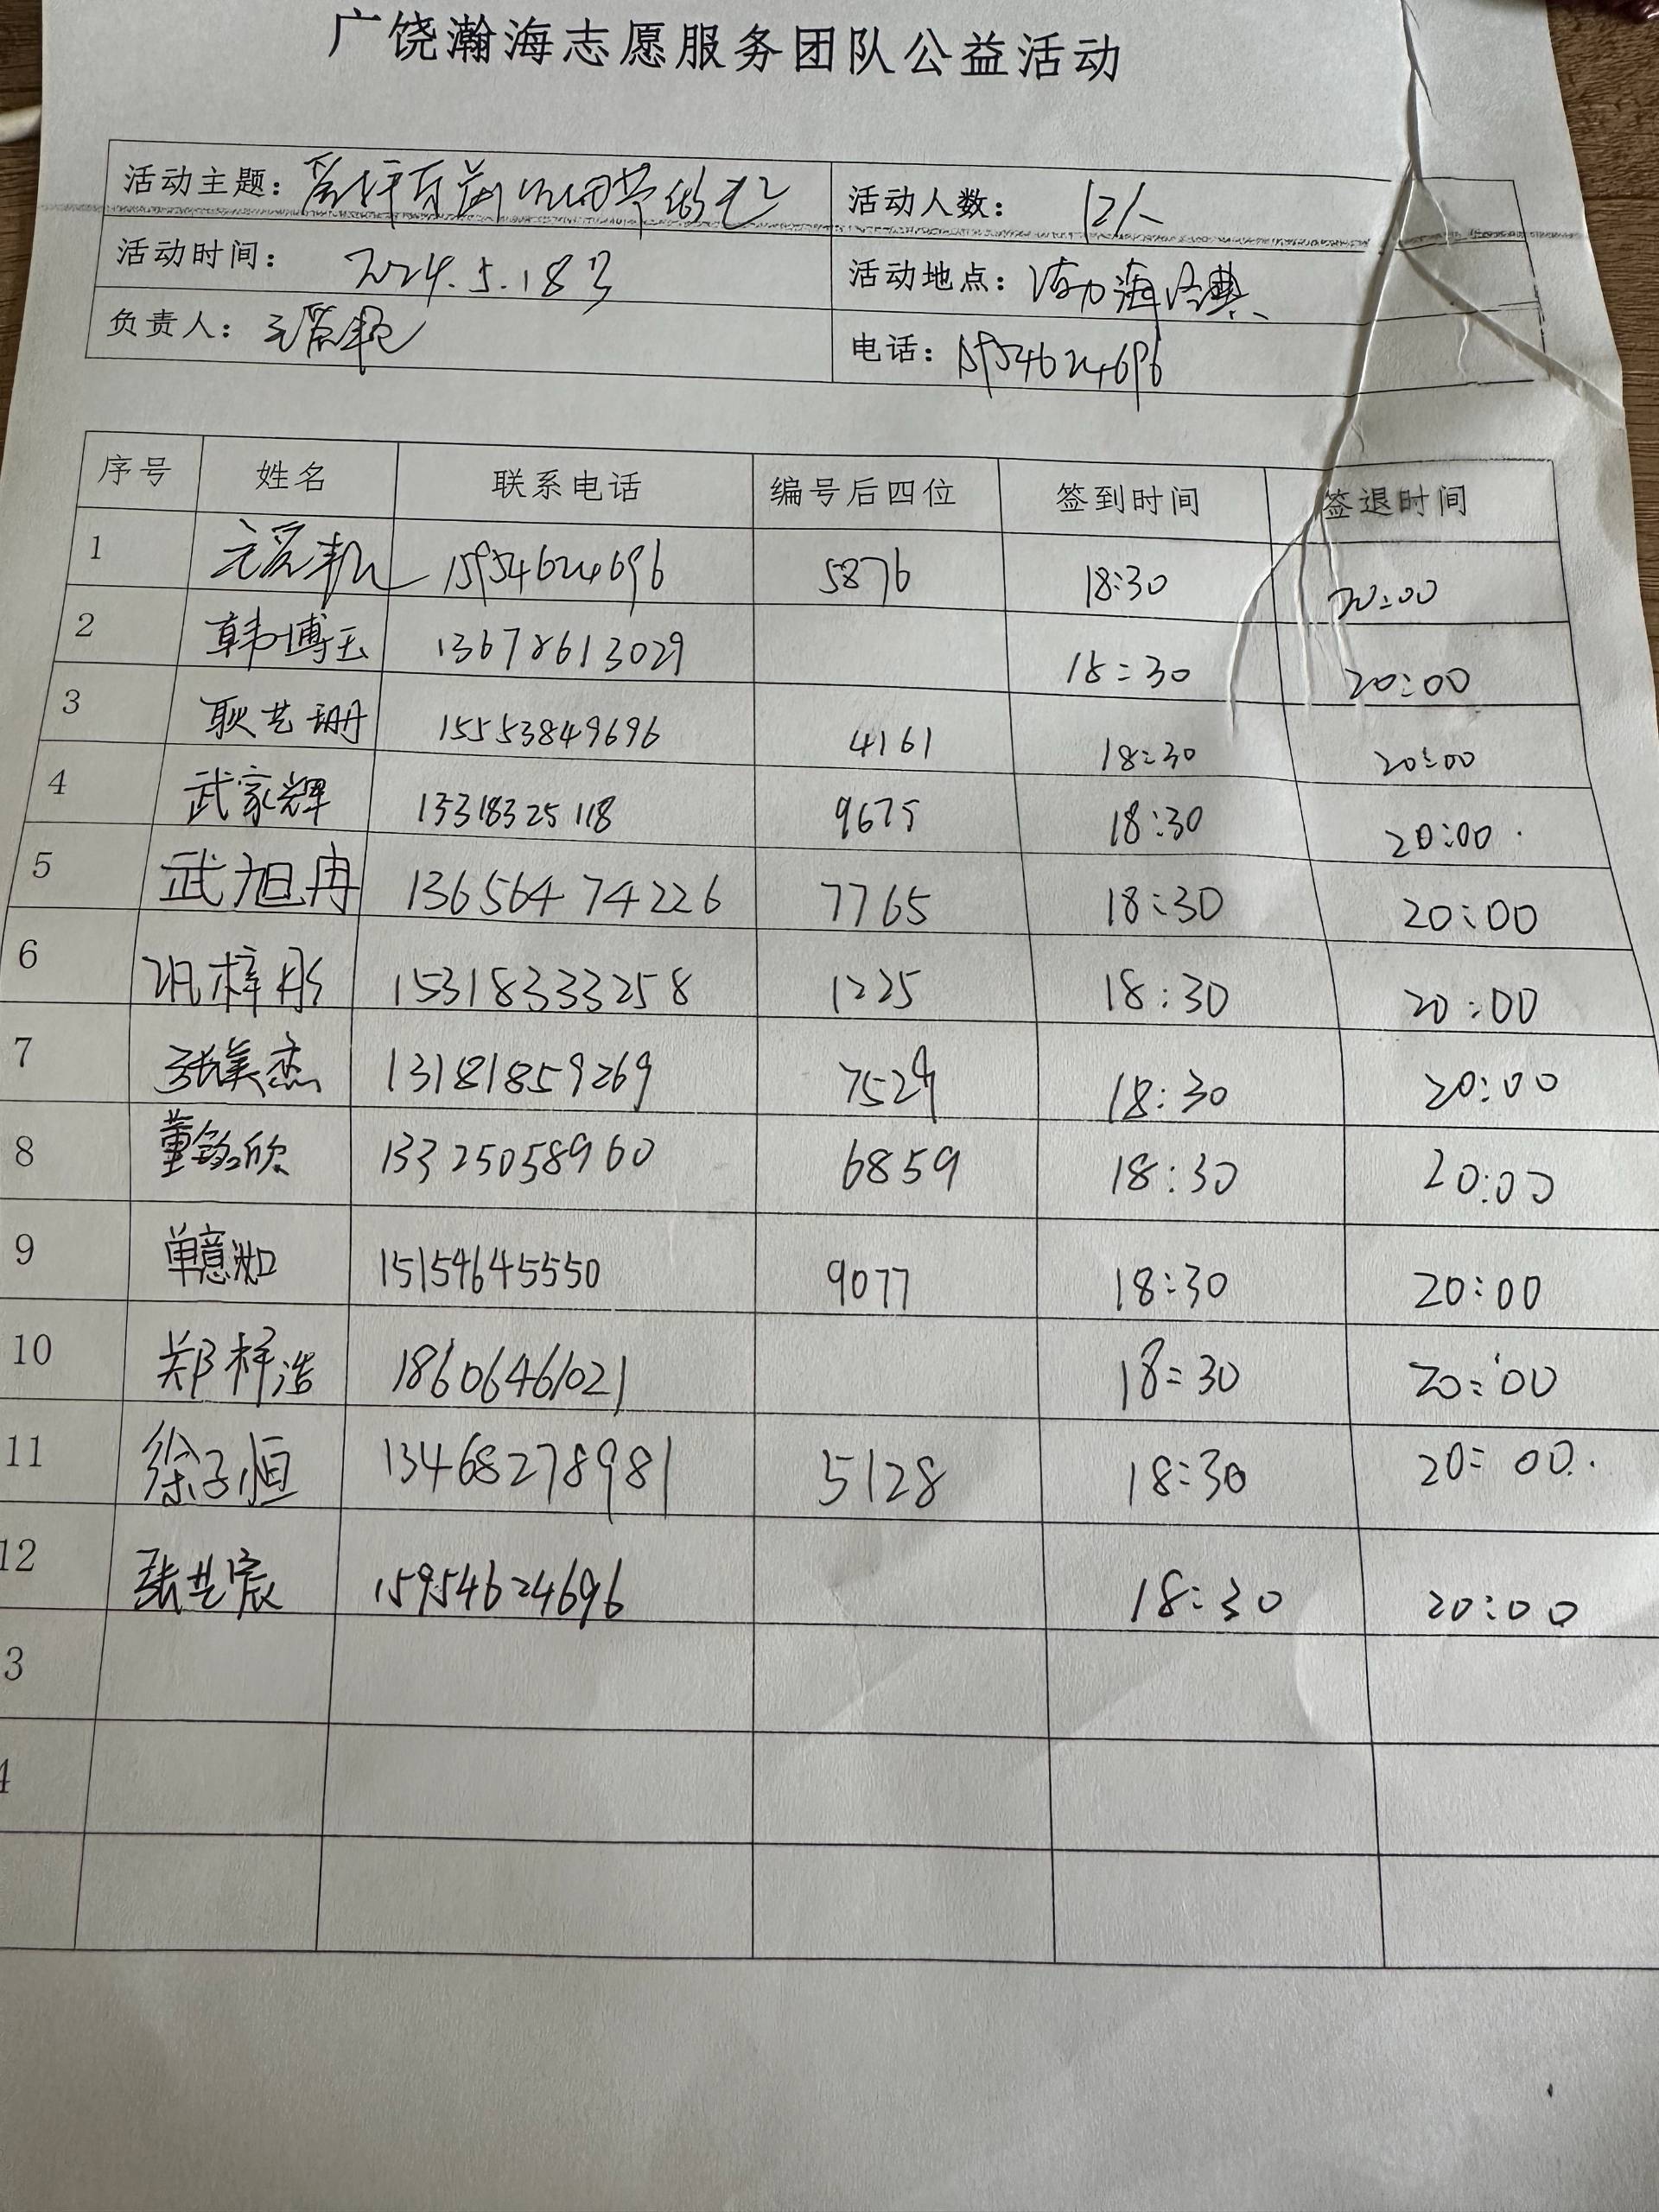 广饶瀚海志愿服务团队公益活动
活动主题： 活动人数： 12人
活动时间： 2024.5.18号 活动地点： 渤海经典
负责人： 电话： 15954624696
序号 姓名 联系电话 编号后四位 签到时间 签退时间
1 15954624696 5876 18:30 20:00
2 韩博玉 13678613029 18:30 20:00
3 耿艺珊 15553849696 4161 18:30 20:00
4 武家辉 13318325118 9675 18:30 20:00
5 武旭冉 13656474226 7765 18:30 20:00
6 巩梓彤 15318333258 1225 18:30 20:00
7 张美杰 13181859269 7529 18:30 20:00
8 董钧欣 13325058960 6859 18:30 20:00
9 单意如 15154645550 9077 18:30 20:00
10 郑梓浩 18606461021 18:30 20:00
11 徐子恒 13468278981 5128 18:30 20:00
12 张艺宸 15954624696 18:30 20:00
3
4